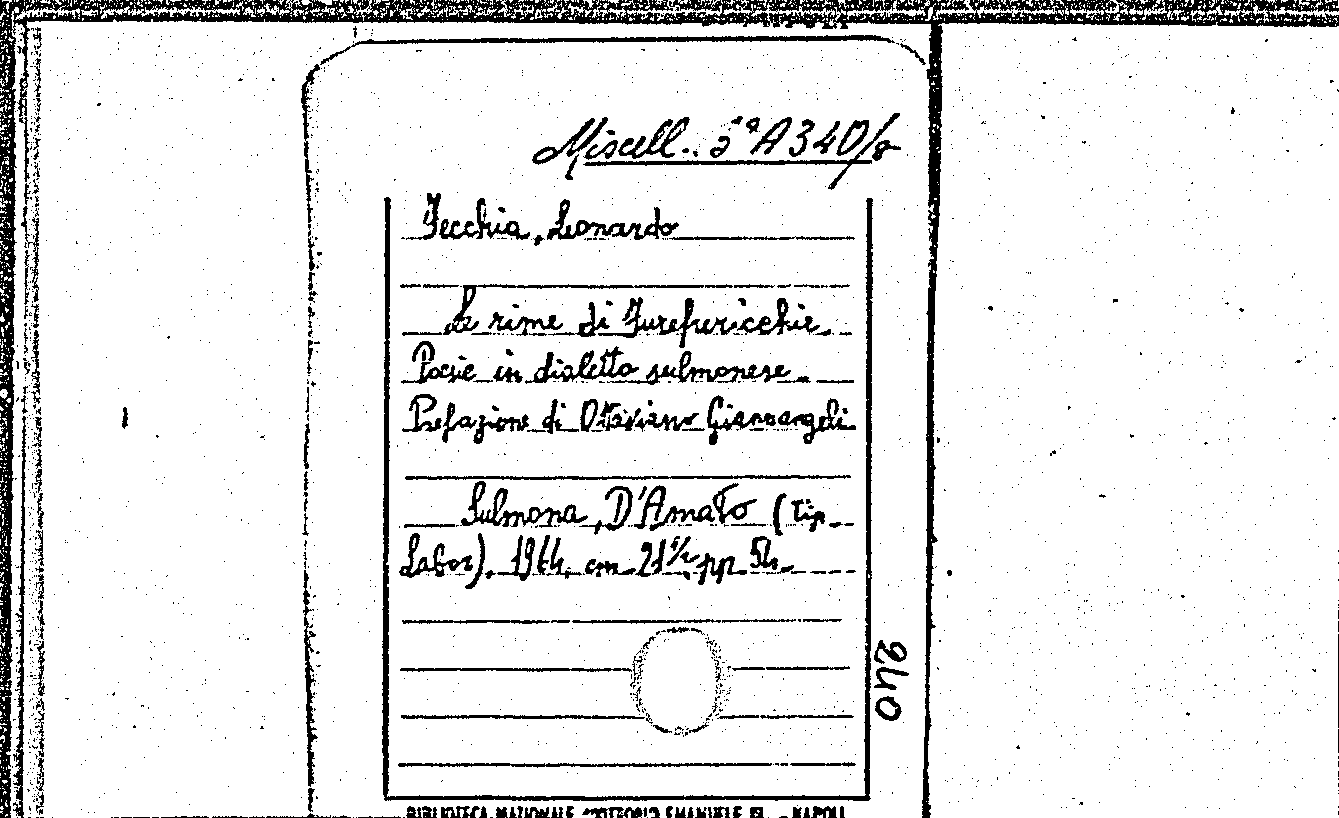 Miscell. 3ª A 340/8
Vecchia, Leonardo
Le rime di
Poesie in dialetto sulmonese.
Prefazione di Ottaviano Giannangeli
Sulmona, D'Amato (tip.
Labor). 1964. cm. 21½ pp. 54.
940
BIBLIOTECA NAZIONALE "VITTORIO EMANUELE III" - NAPOLI